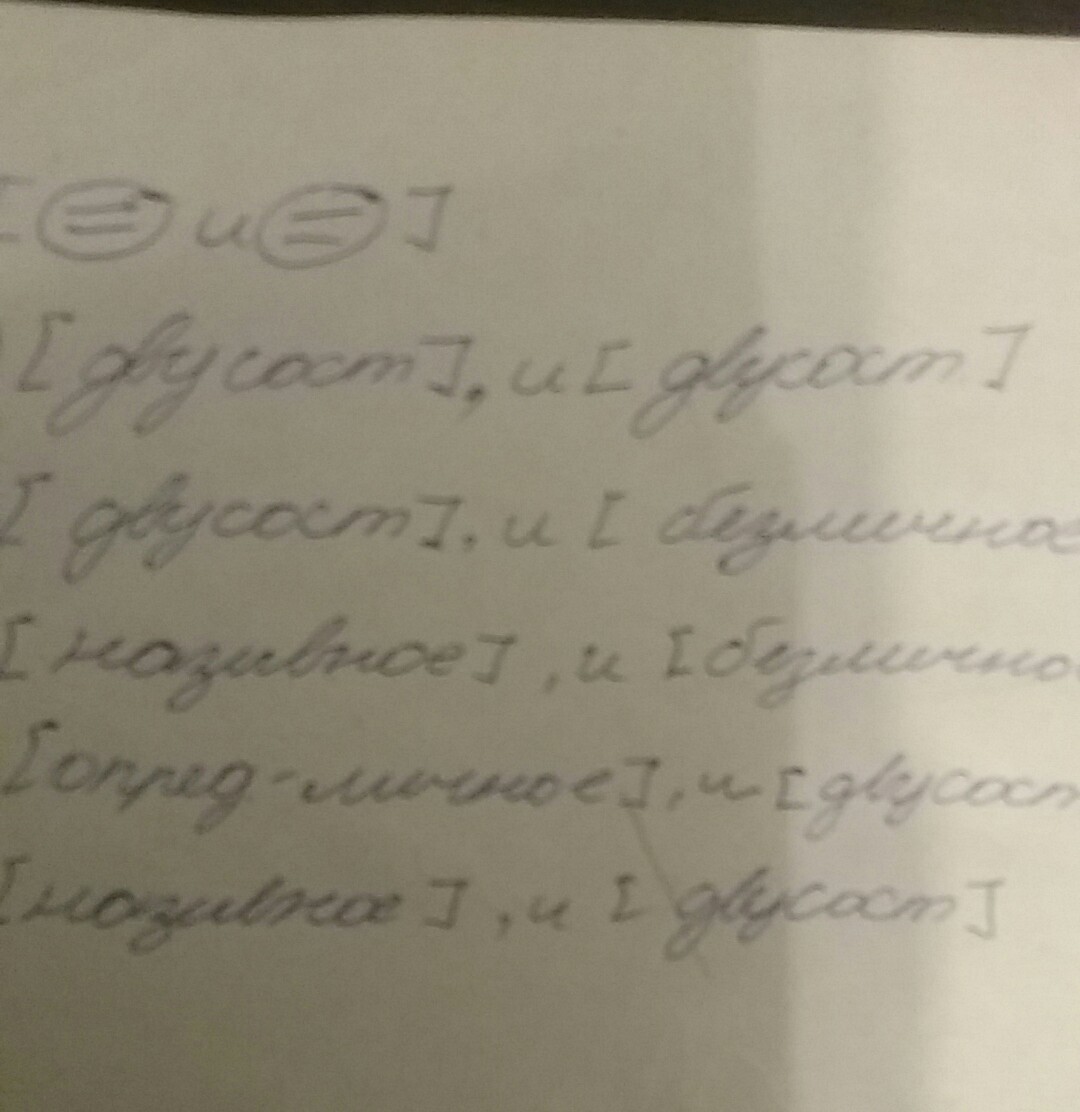 [ = и = ]
[двусост], и [двусост]
[двусост], и [безличное
[назывное], и [безлично
[опред-личное], и [двусост
[назывное], и [двусост]